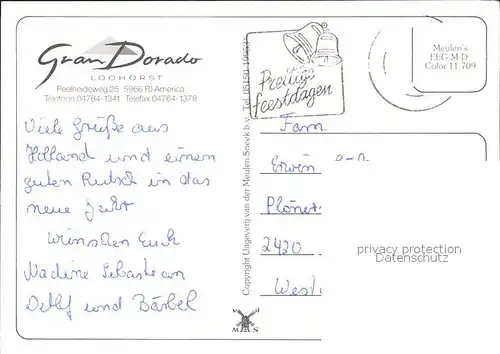 Gran Dorado
LOOHORST
Peelheideweg 25 5966 PJ America
Telefoon 04764-1341 Telefax 04764-1378
Viele Grüße aus
Holland und einen
guten Rutsch in das
neue Jahr
wünschen Euch
Nadine Sebastian
Detlef und Bärbel
Copyright Uitgeverij van der Meulen Sneek b.v. Tel. 05150
Prettige
feestdagen
Meulen's
EEG-M-D
Color 11.709
Fam
Erwin
2420
privacy protection
Datenschutz